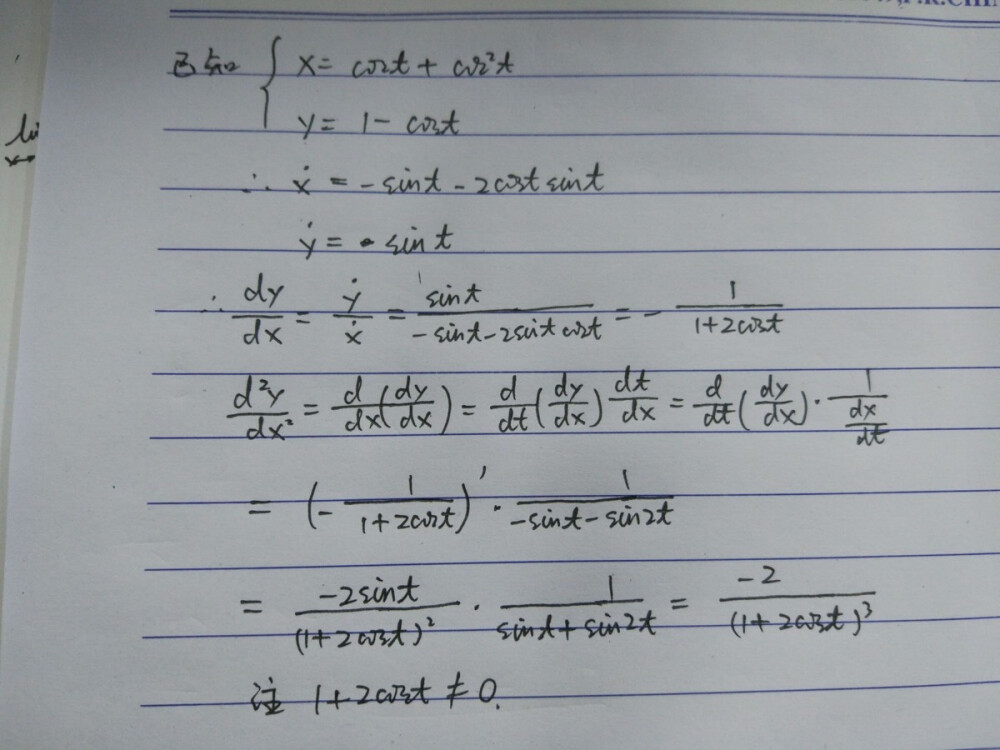 已知 { x = cost + cos²t
y = 1 - cost
∴ ẋ = -sint - 2cost sint
ẏ = sint
∴ dy/dx = ẏ/ẋ = sint/(-sint - 2sint cost) = - 1/(1+2cost)
d²y/dx² = d/dx(dy/dx) = d/dt(dy/dx) dt/dx = d/dt(dy/dx) · 1/(dx/dt)
= (- 1/(1+2cost))' · 1/(-sint - sin2t)
= -2sint/(1+2cost)² · 1/(sint + sin2t) = -2/(1+2cost)³
注 1+2cost ≠ 0.